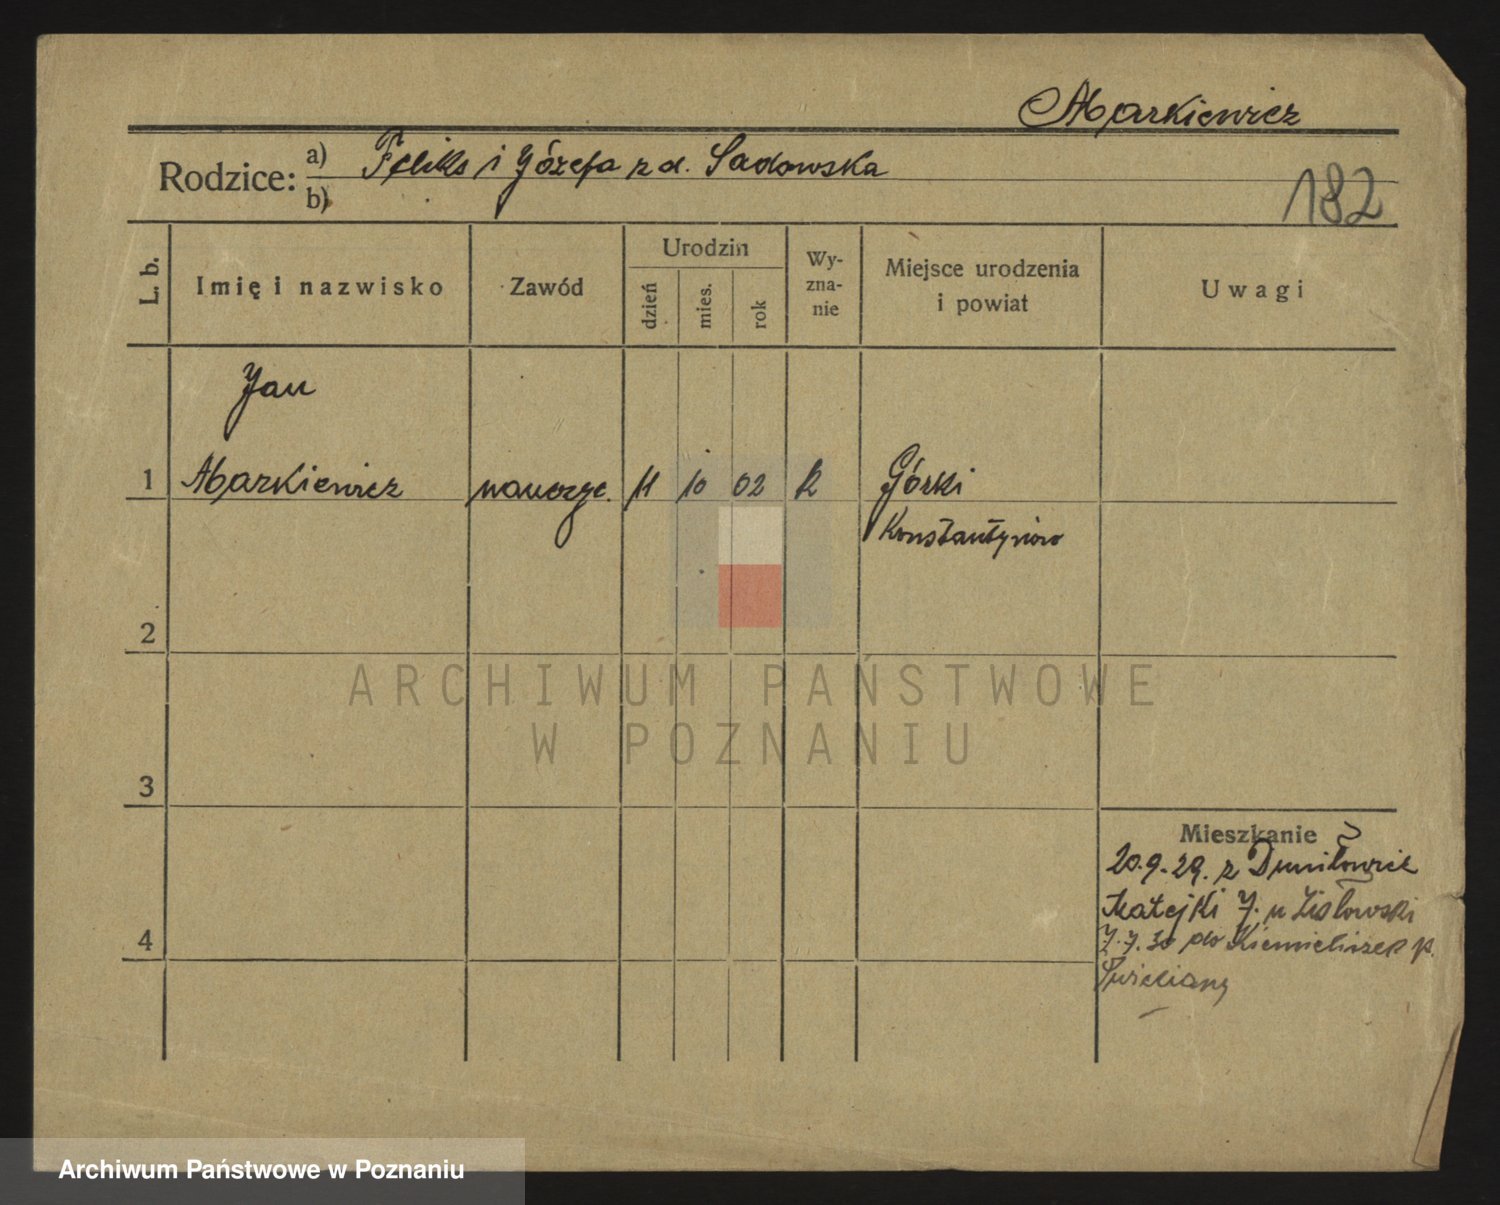 Markiewicz
Rodzice: a) Feliks i Józefa z d. Sadowska
b)
182
L. b.
Imię i nazwisko
Zawód
Urodzin
dzień
mies.
rok
Wy-
zna-
nie
Miejsce urodzenia
i powiat
Uwagi
Jan
1 Markiewicz nauczyc. 11 10 02 R Górki
Konstantynów
2
ARCHIWUM PAŃSTWOWE
W POZNANIU
3
Mieszkanie
20.9.29. z Duniłowicz
Matejki 7. u
4
7.7.30 do Kiemieliszek p.
Święciany
Archiwum Państwowe w Poznaniu